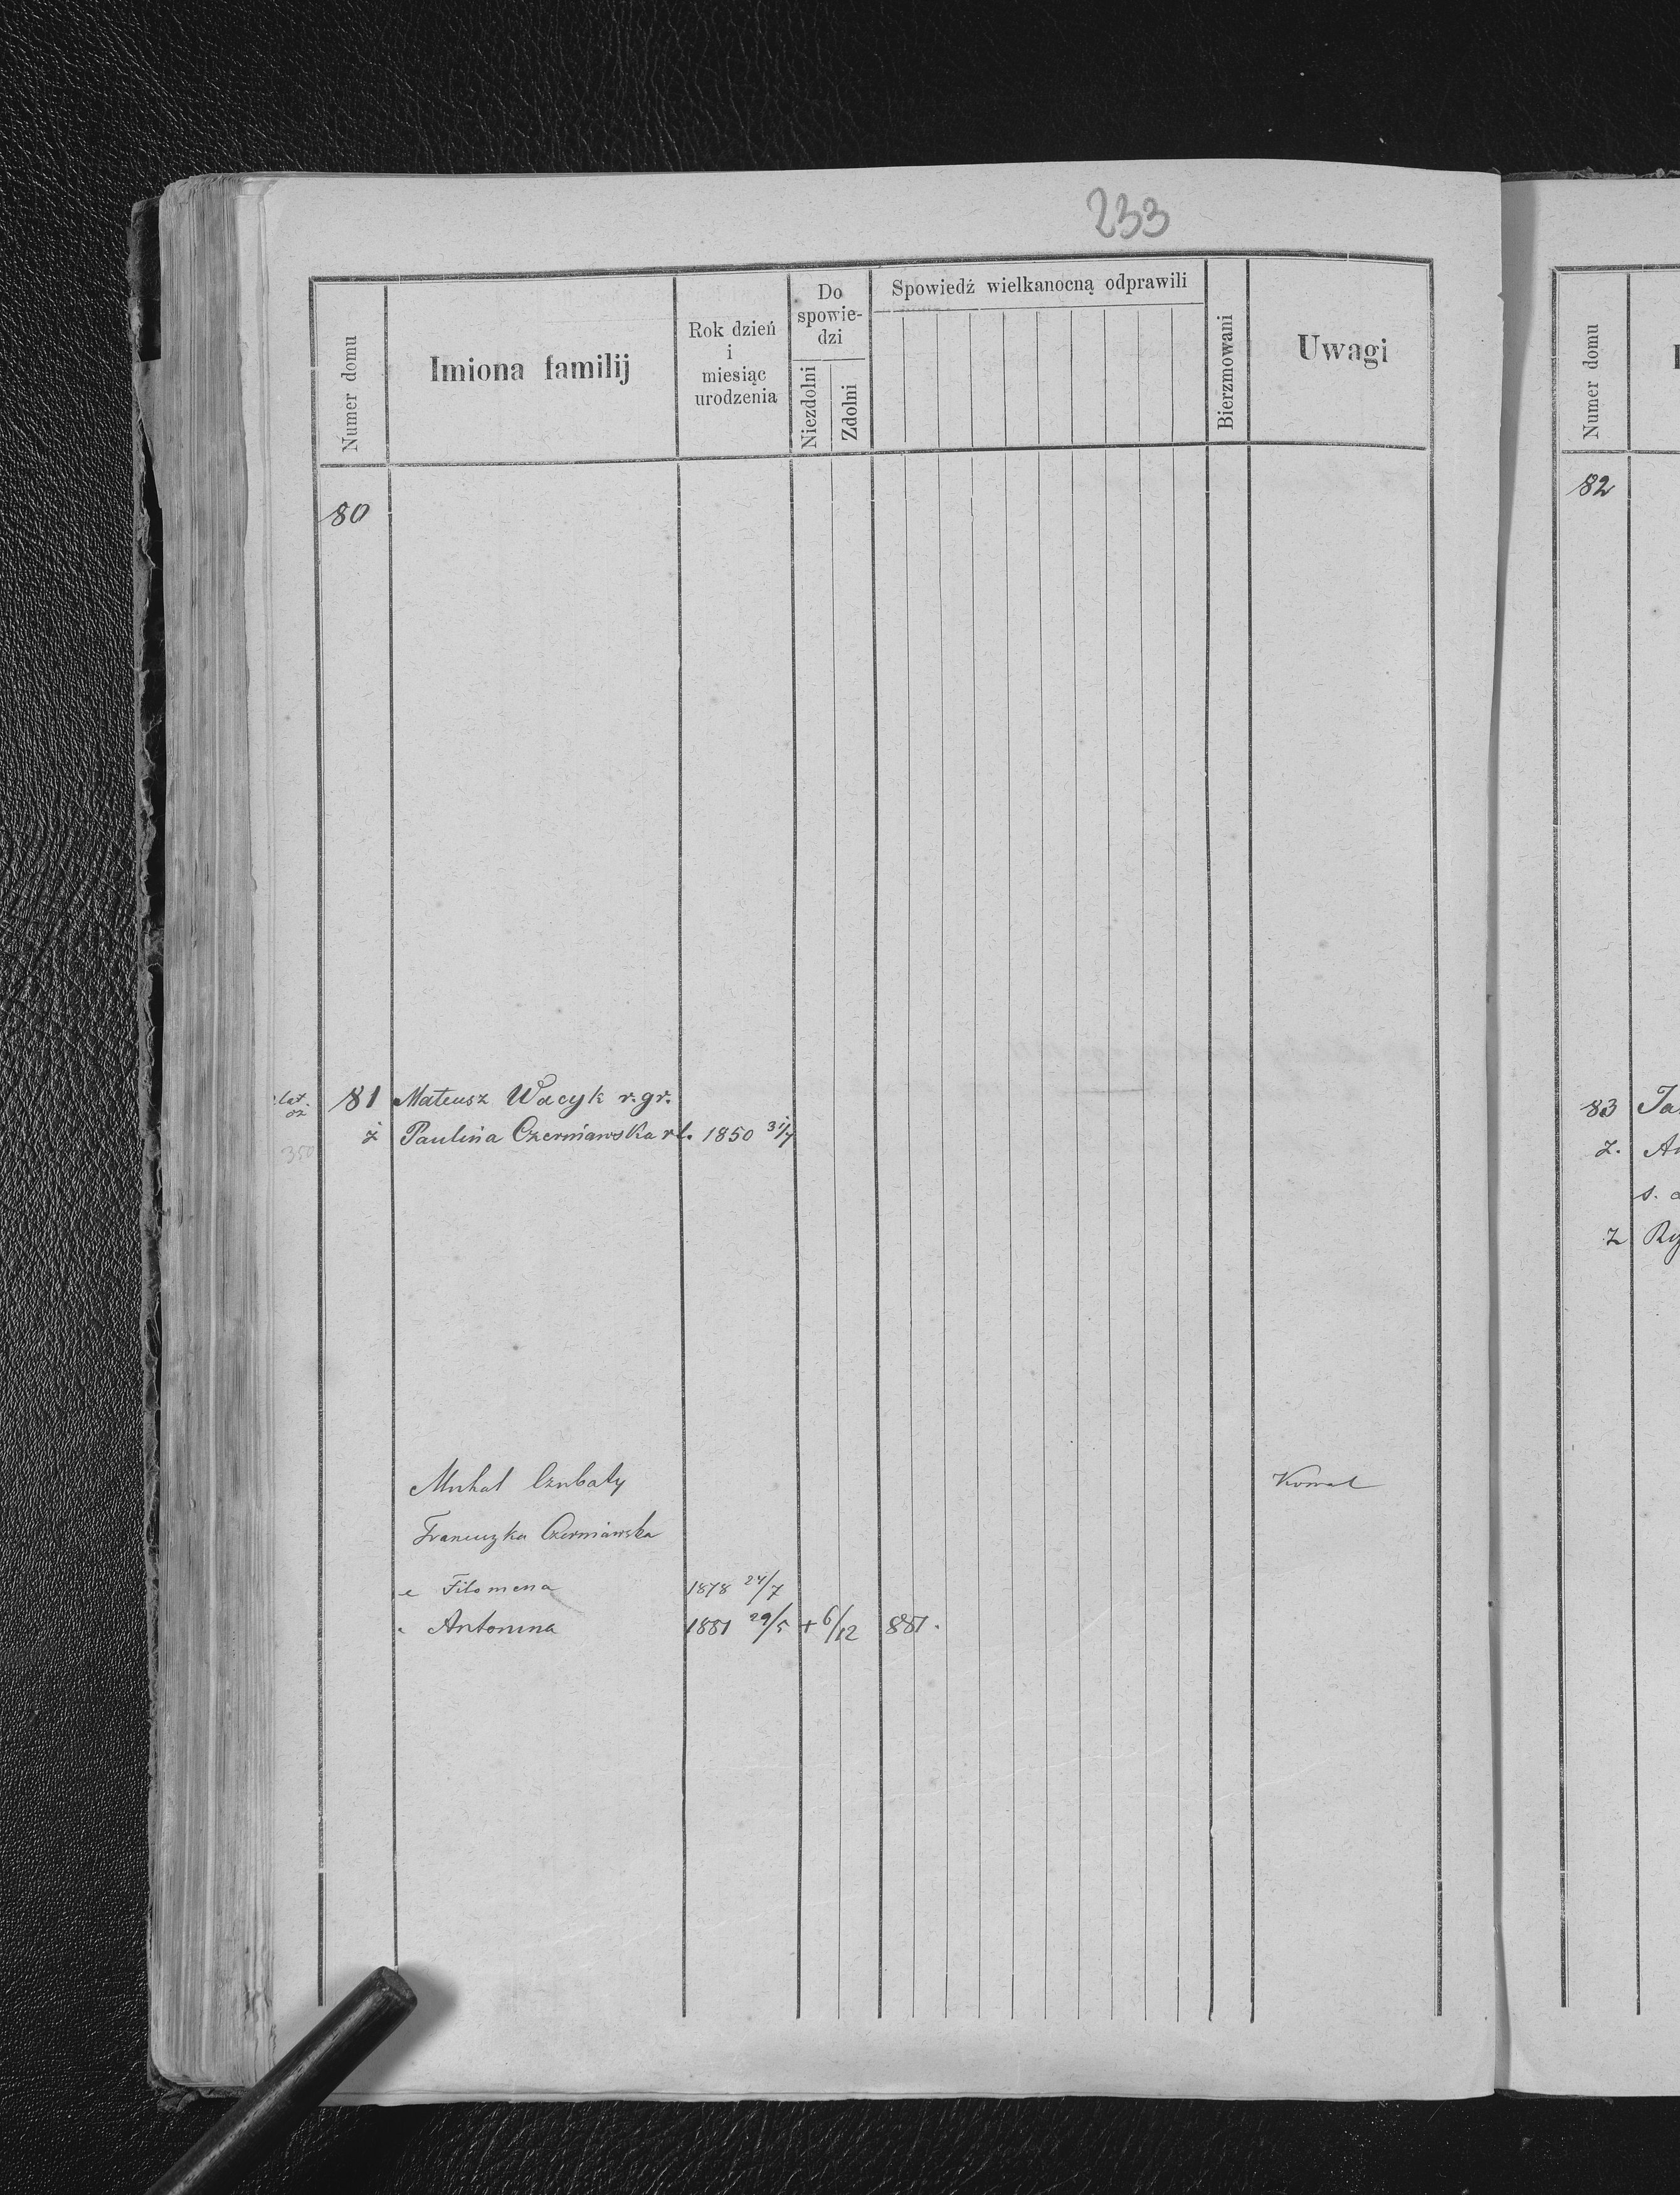 233
Numer domu
Imiona familij
Rok dzień
i
miesiąc
urodzenia
Do
spowie-
dzi
Niezdolni
Zdolni
Spowiedź wielkanocną odprawili
Bierzmowani
Uwagi
80
lat. 81 Mateusz Wacyk r. gr.
ż Paulina Czerniawska rł. 1850 31/7
350
Michał Czubaty Kowal
Franciszka Czerniawska
c Filomena 1878 24/7
" Antonina 1881 29/5 + 6/12 881.
Numer domu
82
83 Ja
ż. An
s.
ż